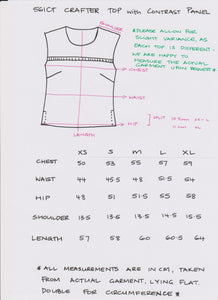 EGICT CRAFTER TOP WITH CONTRAST PANEL
SHOULDER
* PLEASE ALLOW FOR
SLIGHT VARIANCE, AS
EACH TOP IS DIFFERENT -
WE ARE HAPPY TO
MEASURE THE ACTUAL
GARMENT UPON REQUEST *
CHEST
WAIST
HIP
SPLIT
LENGTH
XS S M L XL
CHEST 50 53 55 57 59
WAIST 44 45.5 48 51.5 54
HIP 48 51 51.5 55 58
SHOULDER 13.5 13.5 13.5 14.5 15.5
LENGTH 57 58 60 60.5 64
* ALL MEASUREMENTS ARE IN CM, TAKEN
FROM ACTUAL GARMENT, LYING FLAT.
DOUBLE FOR CIRCUMFERENCE *